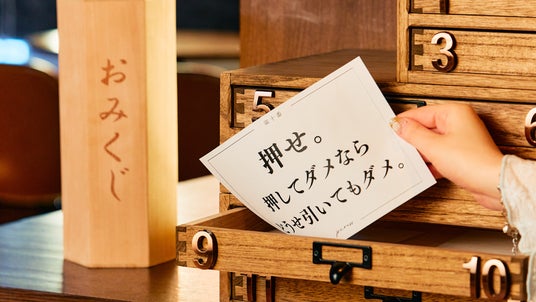 おみくじ
3
5
押せ。
押してダメなら
どうせ引いてもダメ。
6
9
10